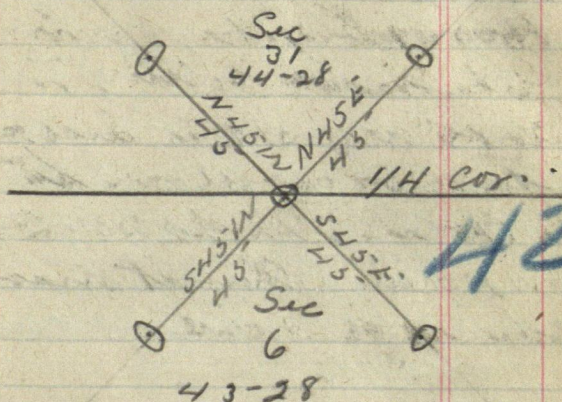 Sec
31
44-28
N45W
45
N45E
45
1/4 cor.
S45W
45
S45E
45
42
Sec
6
43-28